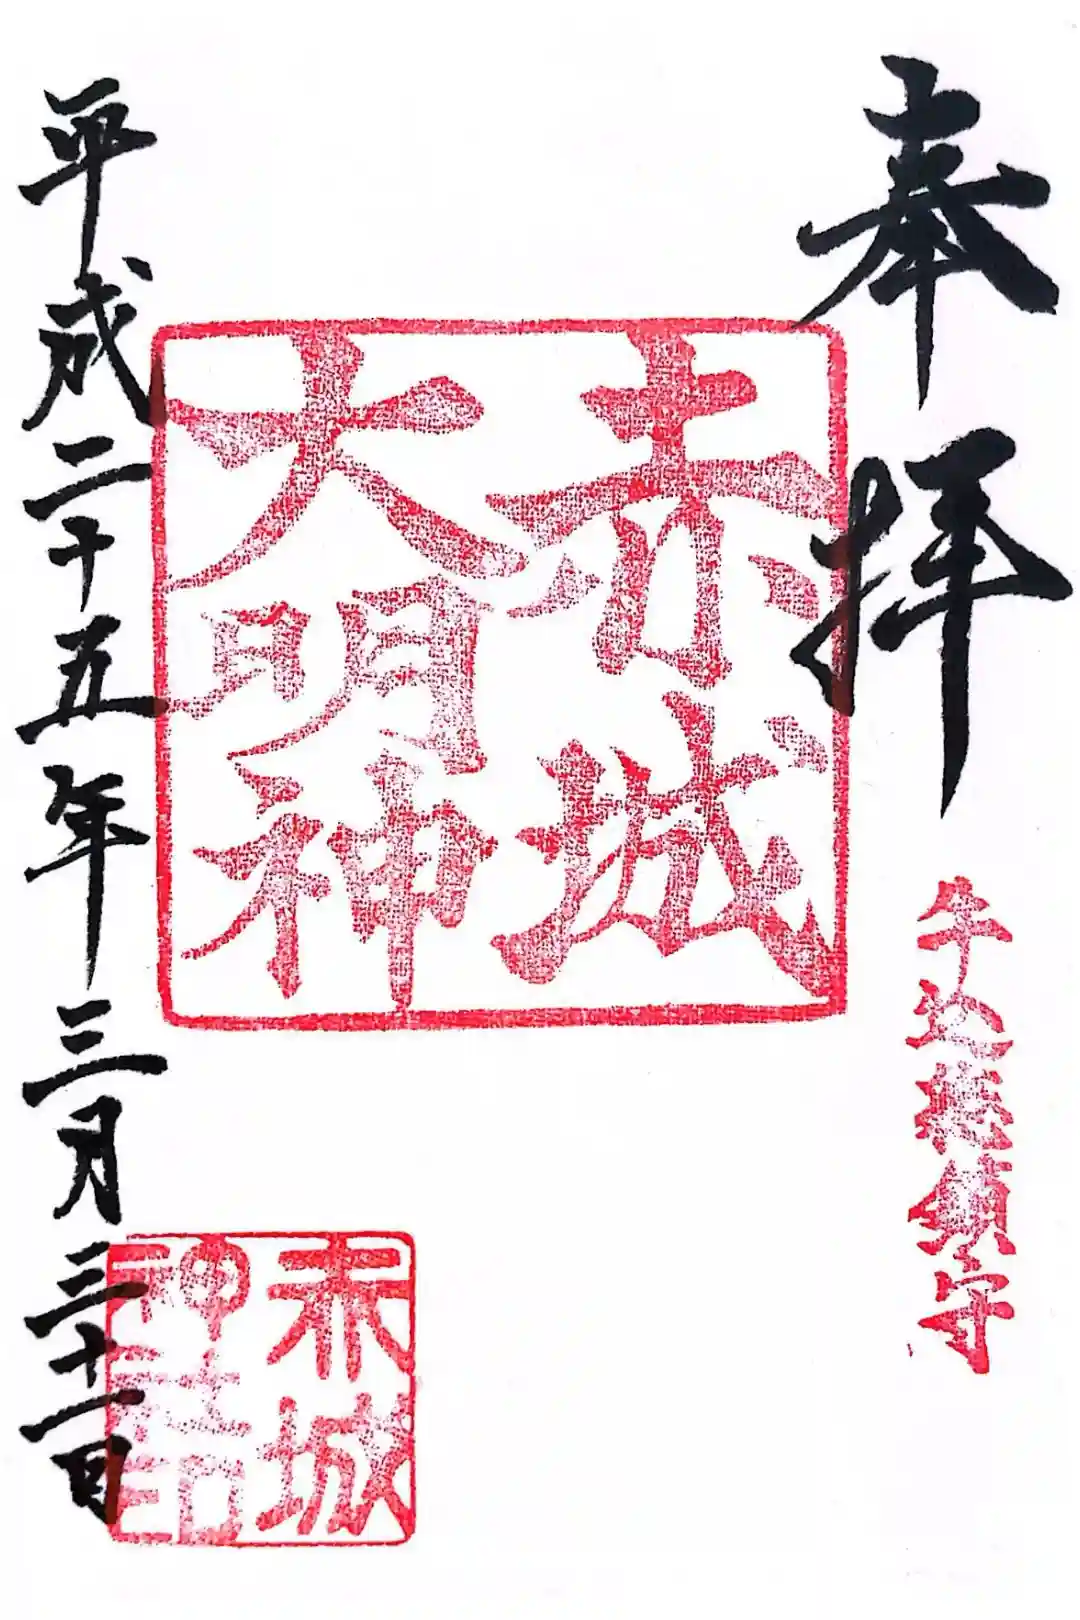 奉拝
牛込総鎮守
赤城
大明神
赤城
神社印
平成二十五年三月三十一日